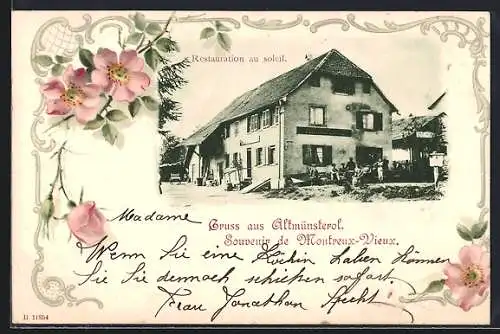 Restauration au soleil.
Gruss aus Altmünsterol.
Souvenir de Montreux-Vieux.
Madame
Wenn Sie eine Köchin haben können
Sie Sie dennoch schicken sofort.
Frau Jonathan Specht